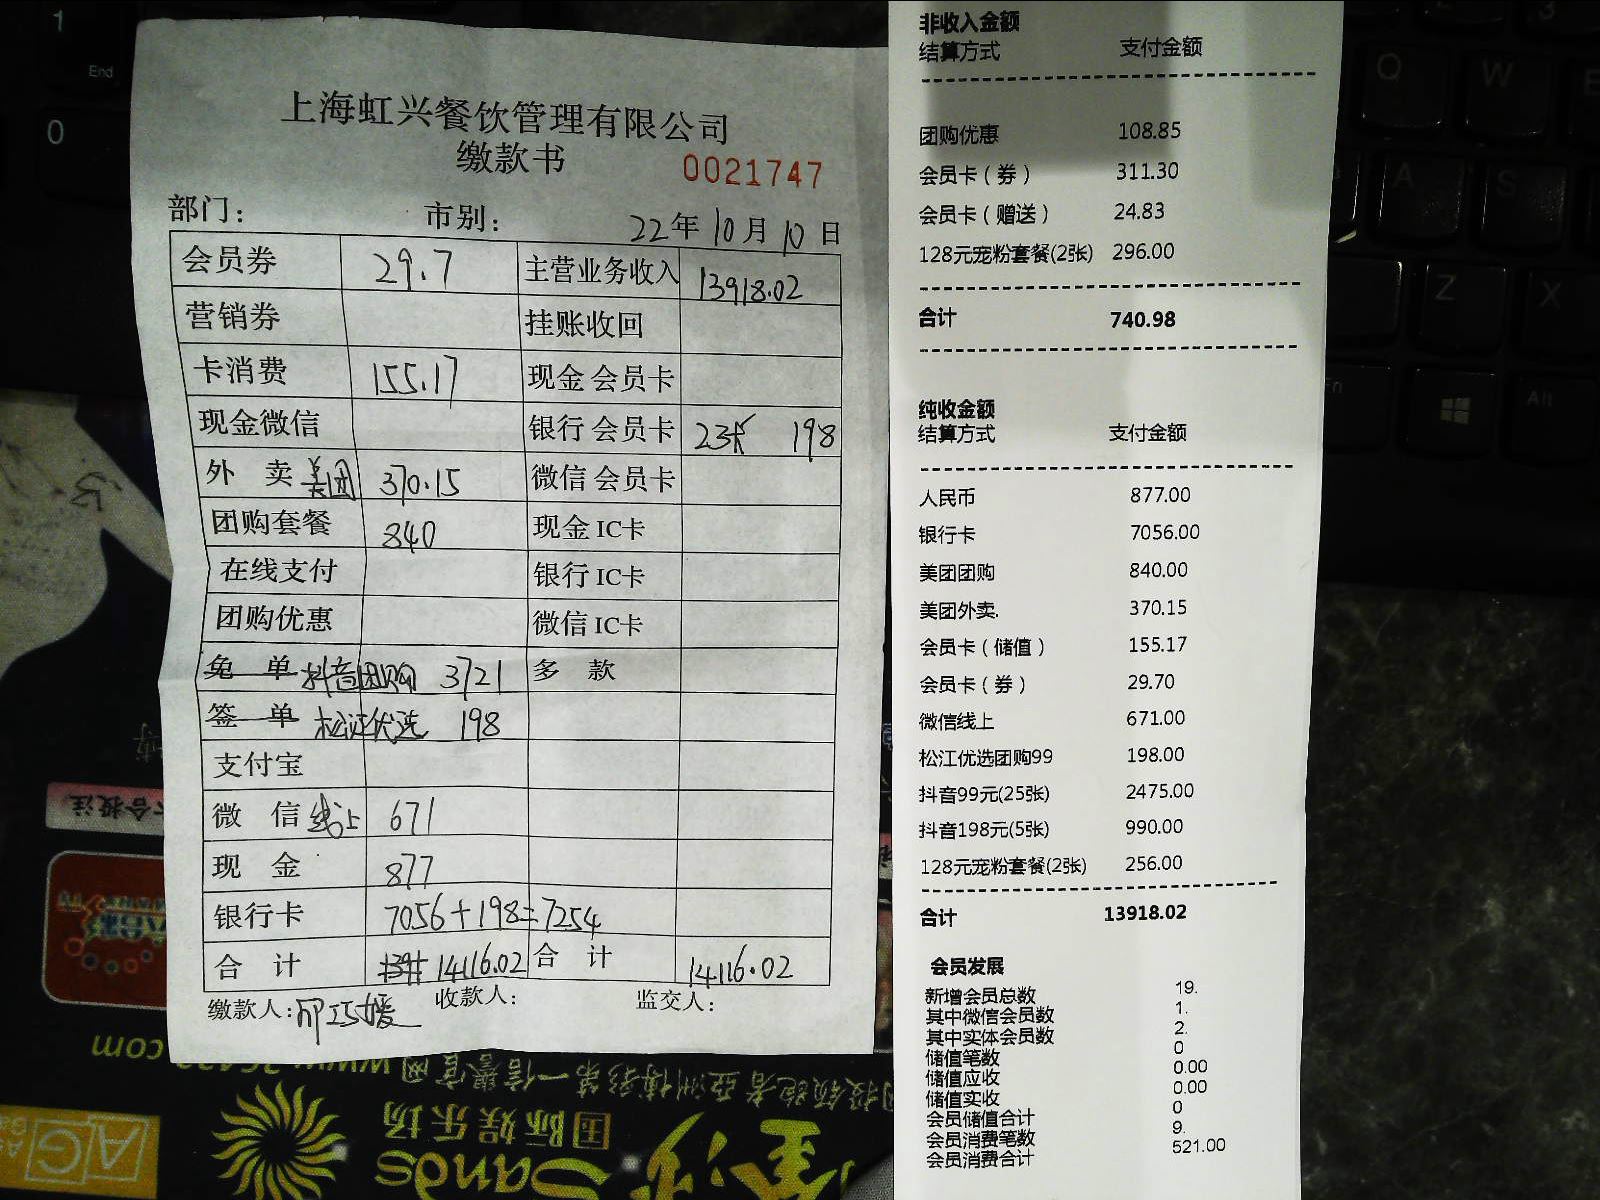 上海虹兴餐饮管理有限公司
缴款书 0021747
部门: 市别: 22年10月10日
会员券 29.7 主营业务收入 13918.02
营销券 挂账收回
卡消费 155.17 现金 会员卡
现金微信 银行 会员卡 23张 198
外 卖 美团 370.15 微信 会员卡
团购套餐 840 现金 IC卡
在线支付 银行 IC卡
团购优惠 微信 IC卡
免 单 抖音团购 3721 多 款
签 单 松江优选 198
支付宝
微 信 线上 671
现 金 877
银行卡 7056+198=7254
合 计 14116.02 合 计 14116.02
缴款人: 收款人: 监交人:
非收入金额
结算方式 支付金额
团购优惠 108.85
会员卡(券) 311.30
会员卡(赠送) 24.83
128元宠粉套餐(2张) 296.00
合计 740.98
纯收金额
结算方式 支付金额
人民币 877.00
银行卡 7056.00
美团团购 840.00
美团外卖. 370.15
会员卡(储值) 155.17
会员卡(券) 29.70
微信线上 671.00
松江优选团购99 198.00
抖音99元(25张) 2475.00
抖音198元(5张) 990.00
128元宠粉套餐(2张) 256.00
合计 13918.02
会员发展
新增会员总数 19.
其中微信会员数 1.
其中实体会员数 2.
储值笔数 0
储值应收 0.00
储值实收 0.00
会员储值合计 0
会员消费笔数 9.
会员消费合计 521.00
1
End
0
Q
W
A
S
Z
X
Alt
国际娱乐场
Sands
AG